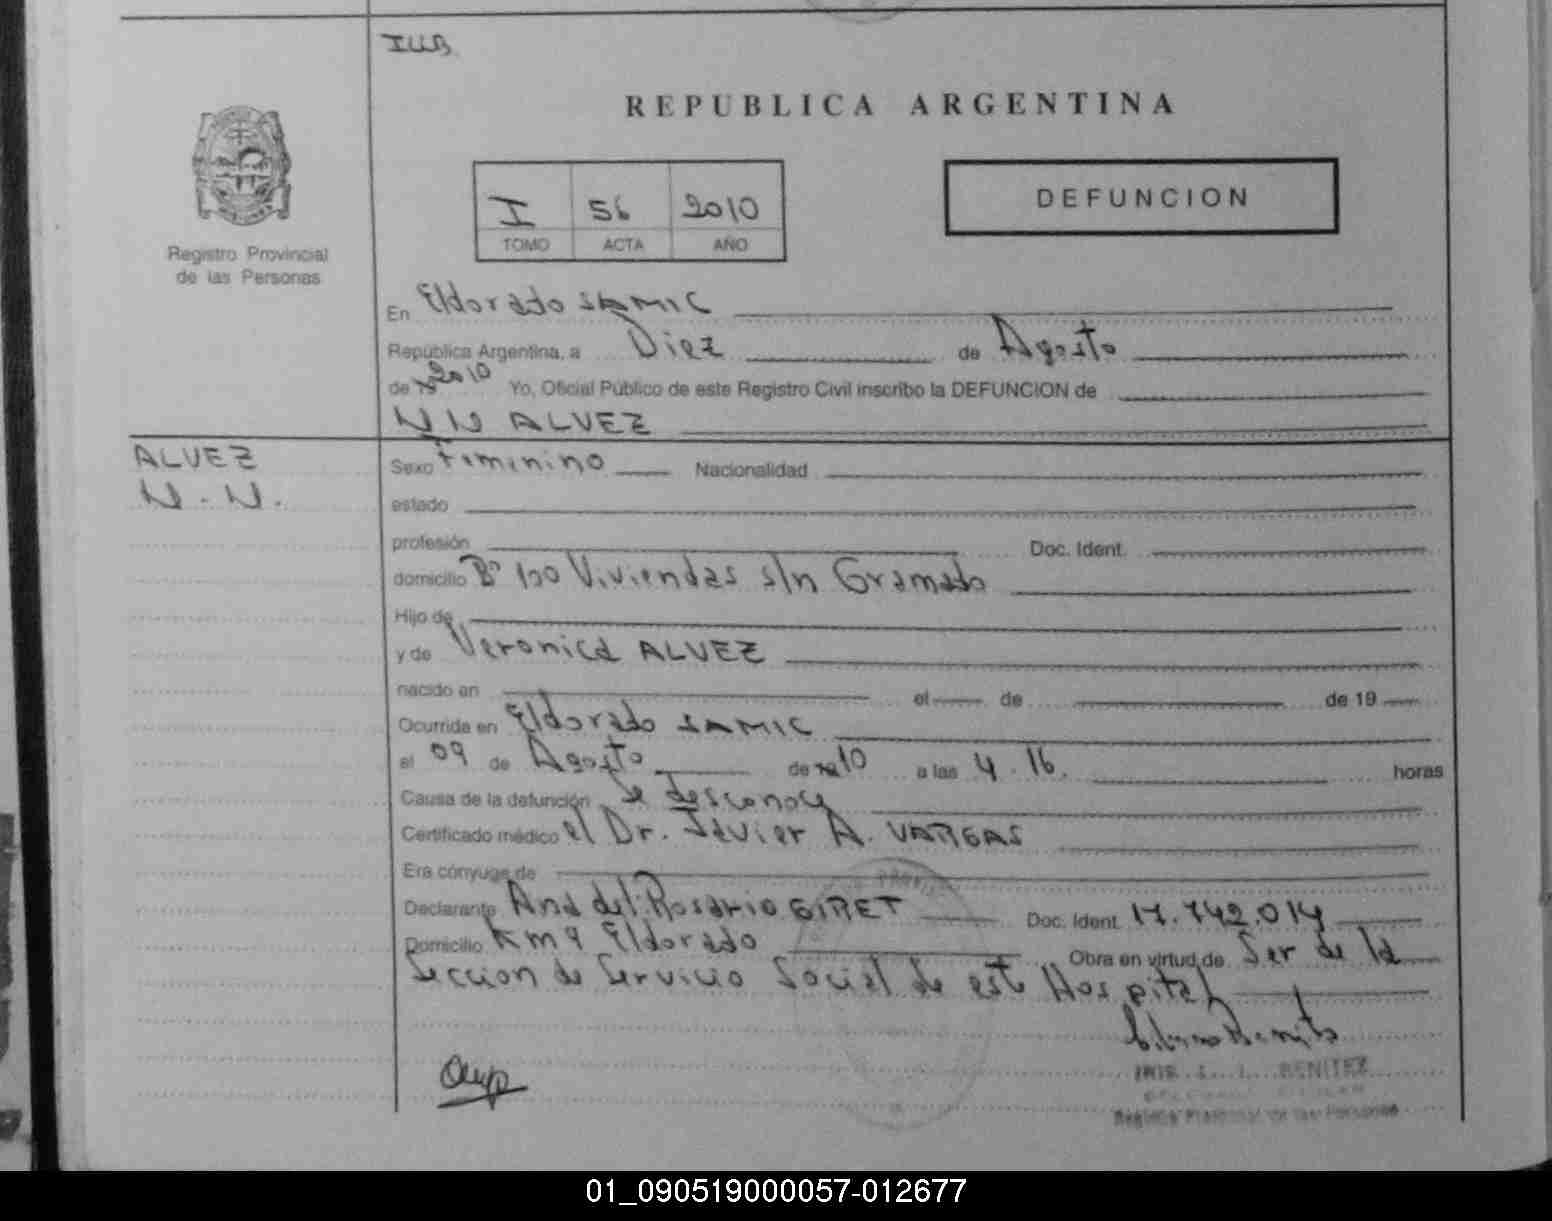 ILLB
REPUBLICA ARGENTINA
I 56 2010
TOMO ACTA AÑO
DEFUNCION
Registro Provincial
de las Personas
En Eldorado SAMIC
República Argentina, a Diez de Agosto
de 2010 Yo, Oficial Público de este Registro Civil inscribo la DEFUNCION de
NN ALVEZ
ALVEZ
N.N.
Sexo Femenino Nacionalidad
estado
profesión Doc. Ident.
domicilio Bº 100 Viviendas s/n Gramado
Hijo de
y de Veronica ALVEZ
nacido en el de de 19
Ocurrida en Eldorado SAMIC
el 09 de Agosto de 10 a las 4.16. horas
Causa de la defunción Se desconoce
Certificado médico el Dr. Javier A. VARGAS
Era cónyuge de
Declarante Ana del Rosario GIRET Doc. Ident. 17.742.014
Domicilio Km 9 Eldorado Obra en virtud de Ser de la
Seccion de Servicio Social de este Hospital
BENITEZ
Registro Provincial de las Personas
01_090519000057-012677